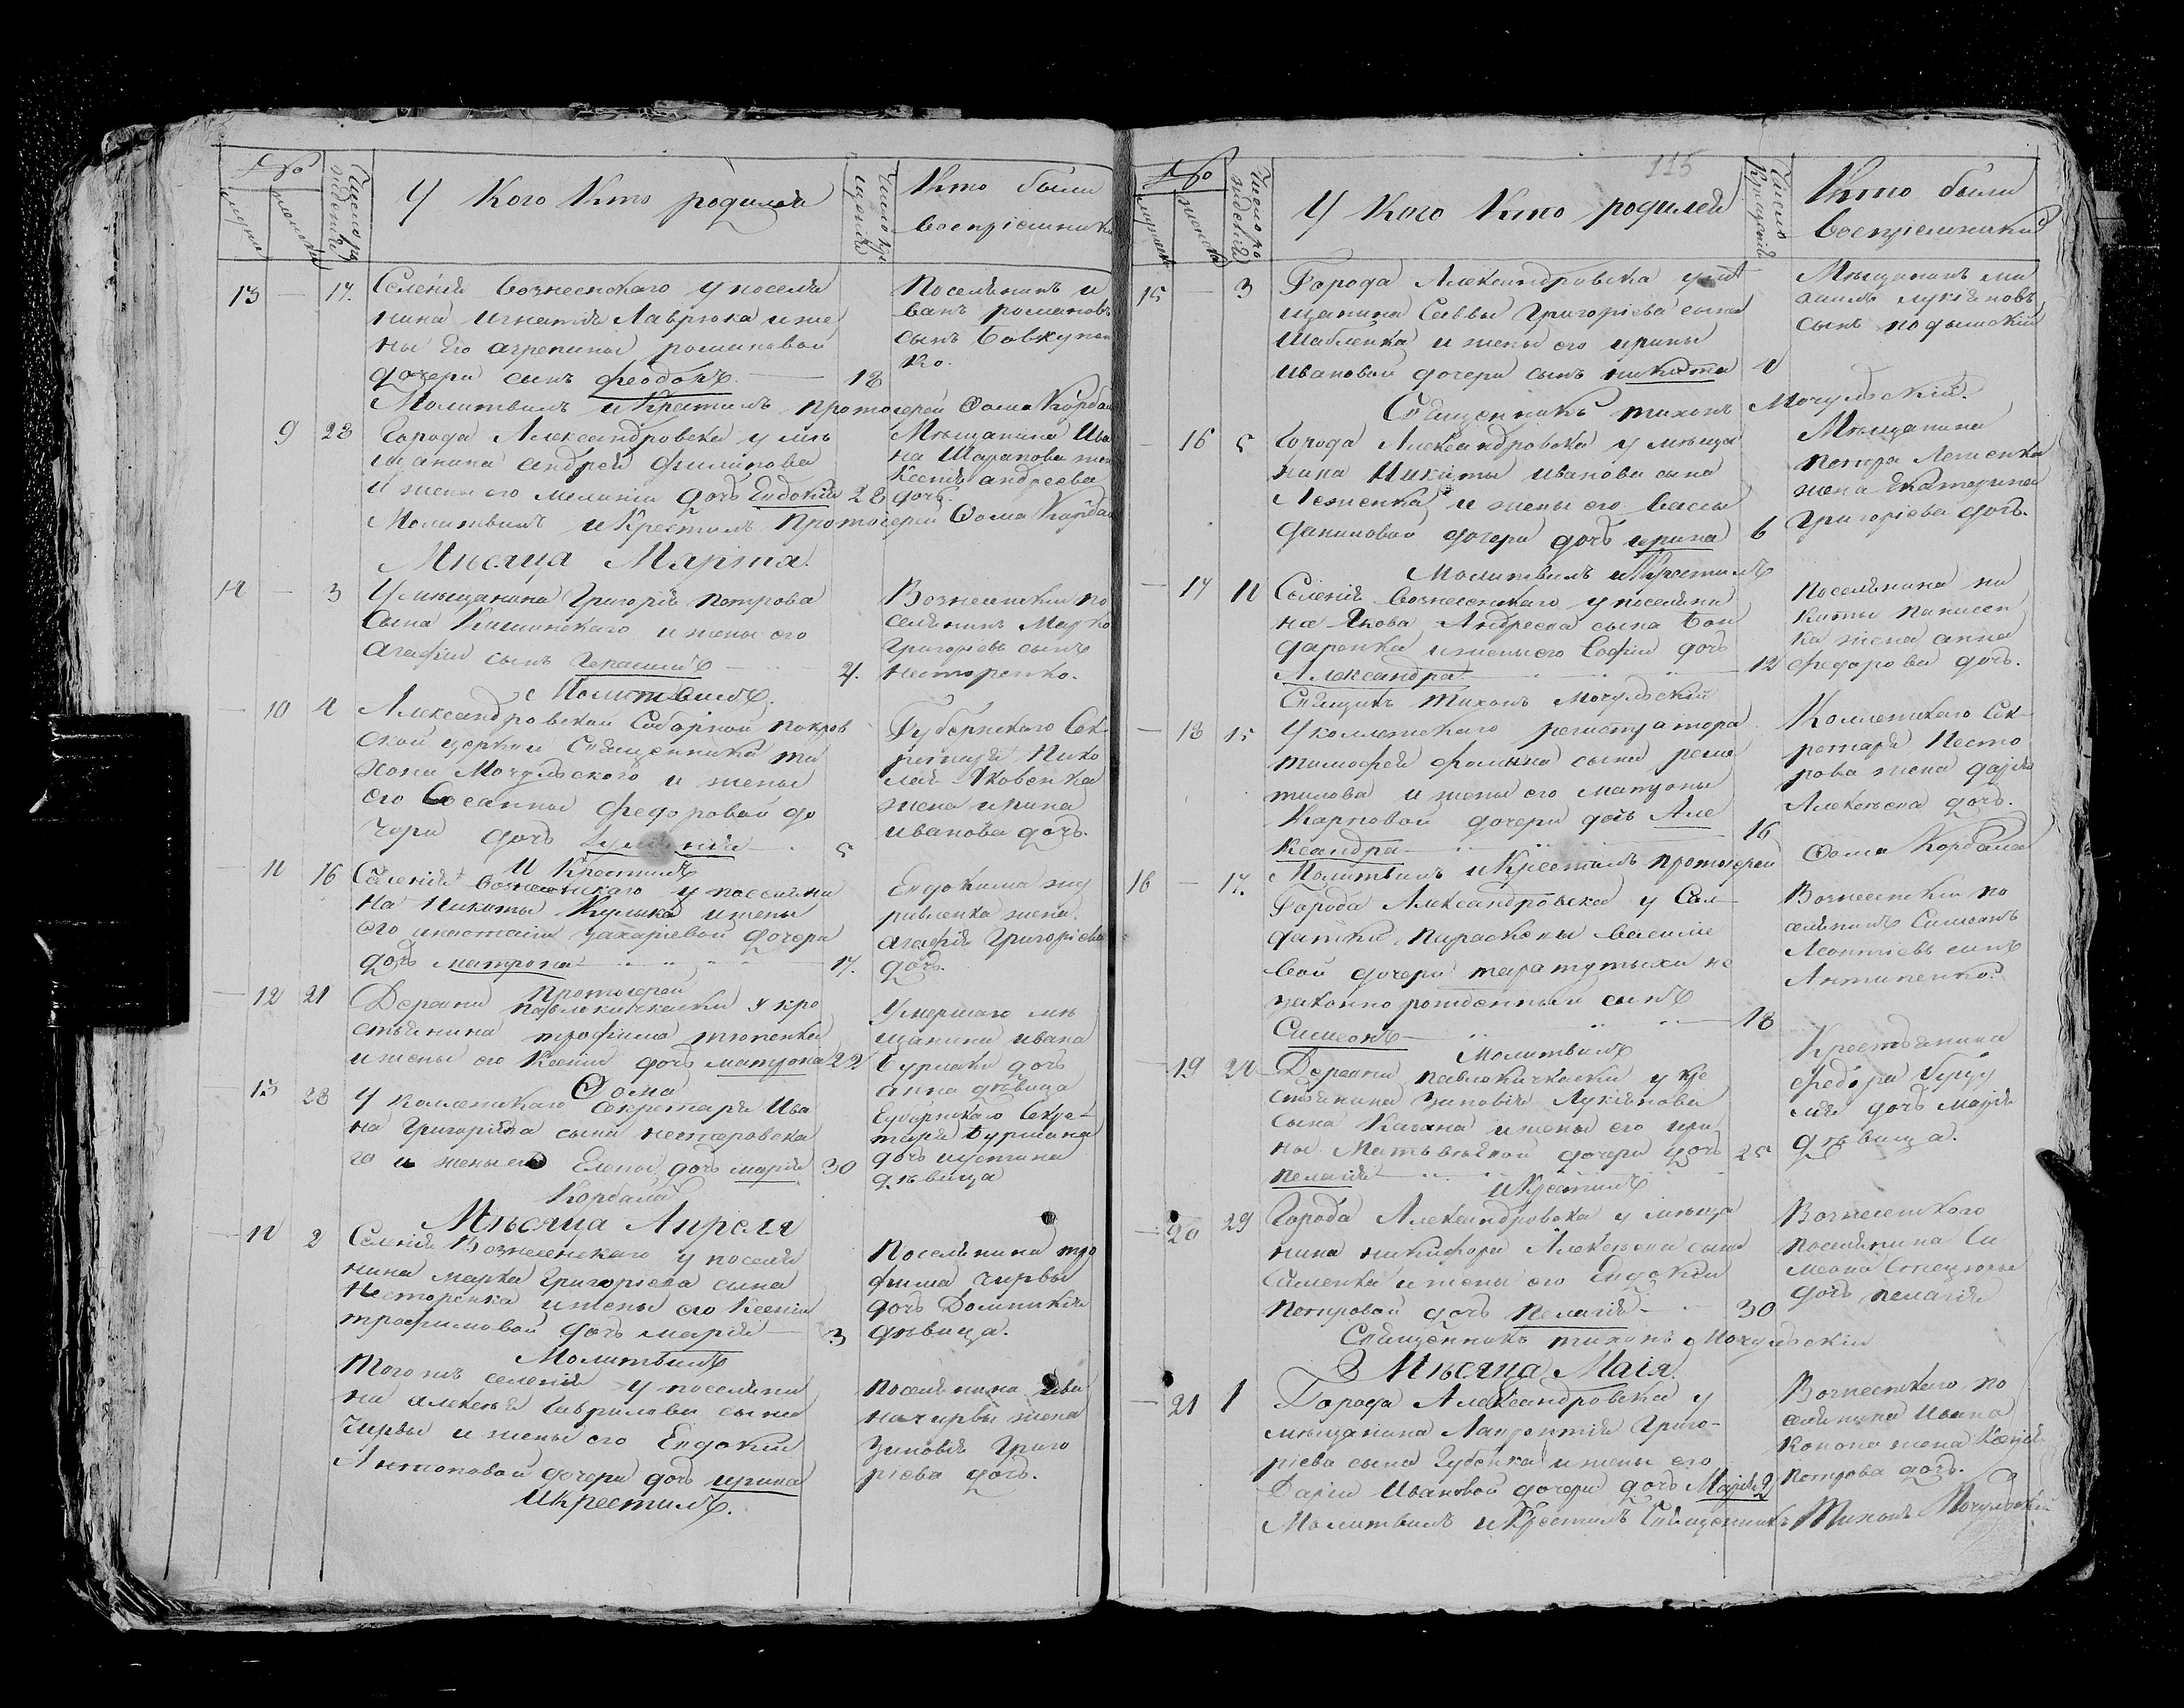 №
Число рождения
У Кого Кто родился
Число крещения
Кто были
Воспріемники
13 - 17. Селенія вознесенского у поселя
нина игнатія Лаврюка и же
ны Его агрепины романовой
дочери сынъ феодотъ. 18
Поселянинъ и
ванъ романовъ
сынъ
ко.
Молитвилъ и Крестилъ протоіерей Ѳома Корбан
9 28 Города Александровска у мѣ
щанина андрея филипова
и жены его меланіи дочь Евдокія 28
Мѣщанина Ива
на Шарапова жен
Ксенія андреева
дочь.
Молитвилъ и Крестилъ Протоіерей Ѳома
Мѣсяца Марта.
14 - 3 У мѣщанина Григорія петрова
Сына и жены его
агафіи сынъ Герасимъ 4.
Вознесенскій по
селянинъ Марко
Григоріевъ сынъ
несторенко.
Молитвилъ
- 10 4 Александровской Соборной покров
ской церкви Священника ти
хона Мочульского и жены
его Сосанны федоровой до
чери дочь 5
Губернского Сек-
ретаря Нико
лая Яковенка
жена ирина
иванова дочь.
и Крестилъ
- 11 16 Селенія вознесенского у поселяни
на Никиты Кулика и жены
его анастасіи захаріевой дочери
дочь матрона 17.
Евдокима жу
равленка жена
агафія Григоріева
дочь.
Протоіерей
- 12 21 Деревни павлокичкаски у кре
стьянина трофима
и жены его Ксеніи дочь матрона 22
Умершаго мѣ
щанина ивана
бурлаки дочь
анна дѣвица
Ѳома
- 13 28 У коллежского Секретаря Ива
на Григоріева сына нестеровска
го и жены его Елены дочь марія 30
Губернского Секре-
таря бурмана
дочь иустина
дѣвица
Корбана
Мѣсяца Апреля
- 14 2 Селенія Вознесенского у поселя
нина марка Григоріева сына
Несторенка и жены его Ксеніи
трофимовой дочь марія 3
Поселянина тро
фима чирвы
дочь Домникія
дѣвица.
Молитвилъ
Того жъ селенія у поселяни
на алексѣя Гаврилова сына
Чирвы и жены его Евдокіи
Антоновой дочери дочь ирина
Поселянина ива
на чирвы жена
Зиновія Григо
ріева дочь.
и Крестилъ.
115
№
Число рождения
У Кого Кто родился
Число Крещения
Кто были
Воспріемники
15 - 3 Города Александровска у мѣ
щанина Саввы Григоріева сына
Шабленка и жены его ирины
ивановой дочери сынъ никита 4
Мѣщанинъ ми
хаилъ лукіяновъ
сынъ
Священникъ тихонъ Мочульскій.
- 16 5 Города Александровска у мѣща
нина Никиты иванова сына
Леженка и жены его вассы
даниловой дочери дочь ирина 6
Мѣщанина
петра Леженка
жена Екатерина
Григоріева дочь.
Молитвилъ и Крестилъ
- 17 11 Селенія вознесенского у поселяни
на Якова Андреева сына бон
даренка и жены его Софіи дочь
Александра 12
Поселянина ни
киты
ка жена анна
федорова дочь.
Священикъ тихонъ Мочульскій
- 18 15 У коллежского регистратора
тимофея фомина сына
и жены его матроны
Карповой дочери дочь Але
ксандра 16
Коллежского Сек-
ретаря Несте
рова жена дарія
Алексѣева дочь.
Молитвилъ и Крестилъ протоіерей Ѳома Корбана
16 - 17. Города Александровска у Сол-
датки Параскевы василіе
вой дочери таратутыхи не
законно рожденный сынъ
Симеонъ 18
Вознесенскій по
селянинъ Симеонъ
Леонтіевъ сынъ
Антипенко.
Молитвилъ
- 19 24 Деревни павлокичкаски у кре
стьянина Зиновія Лукіянова
сына Касана и жены его ири
ны Матвѣевой дочери дочь 25
пелагія
Крестьянина
федора
дочь марія
дѣвица.
и Крестилъ
- 20 29 Города Александровска у мѣща
нина никифора Алексѣева сына
Саленка и жены его Евдокіи
петровой дочь пелагія 30
Вознесенского
поселянина Си
меона
дочь пелагія
Священникъ тихонъ Мочульскій
Мѣсяца Маія.
- 21 1 Города Александровска у
мѣщанина Лаврентія Григо-
ріева сына Губенка и жены его
Даріи Ивановой дочери дочь Марія 2
Вознесенского по
селянина Ивана
Конона жена
петрова дочь.
Молитвилъ и Крестилъ Священникъ Тихонъ Мочульскій